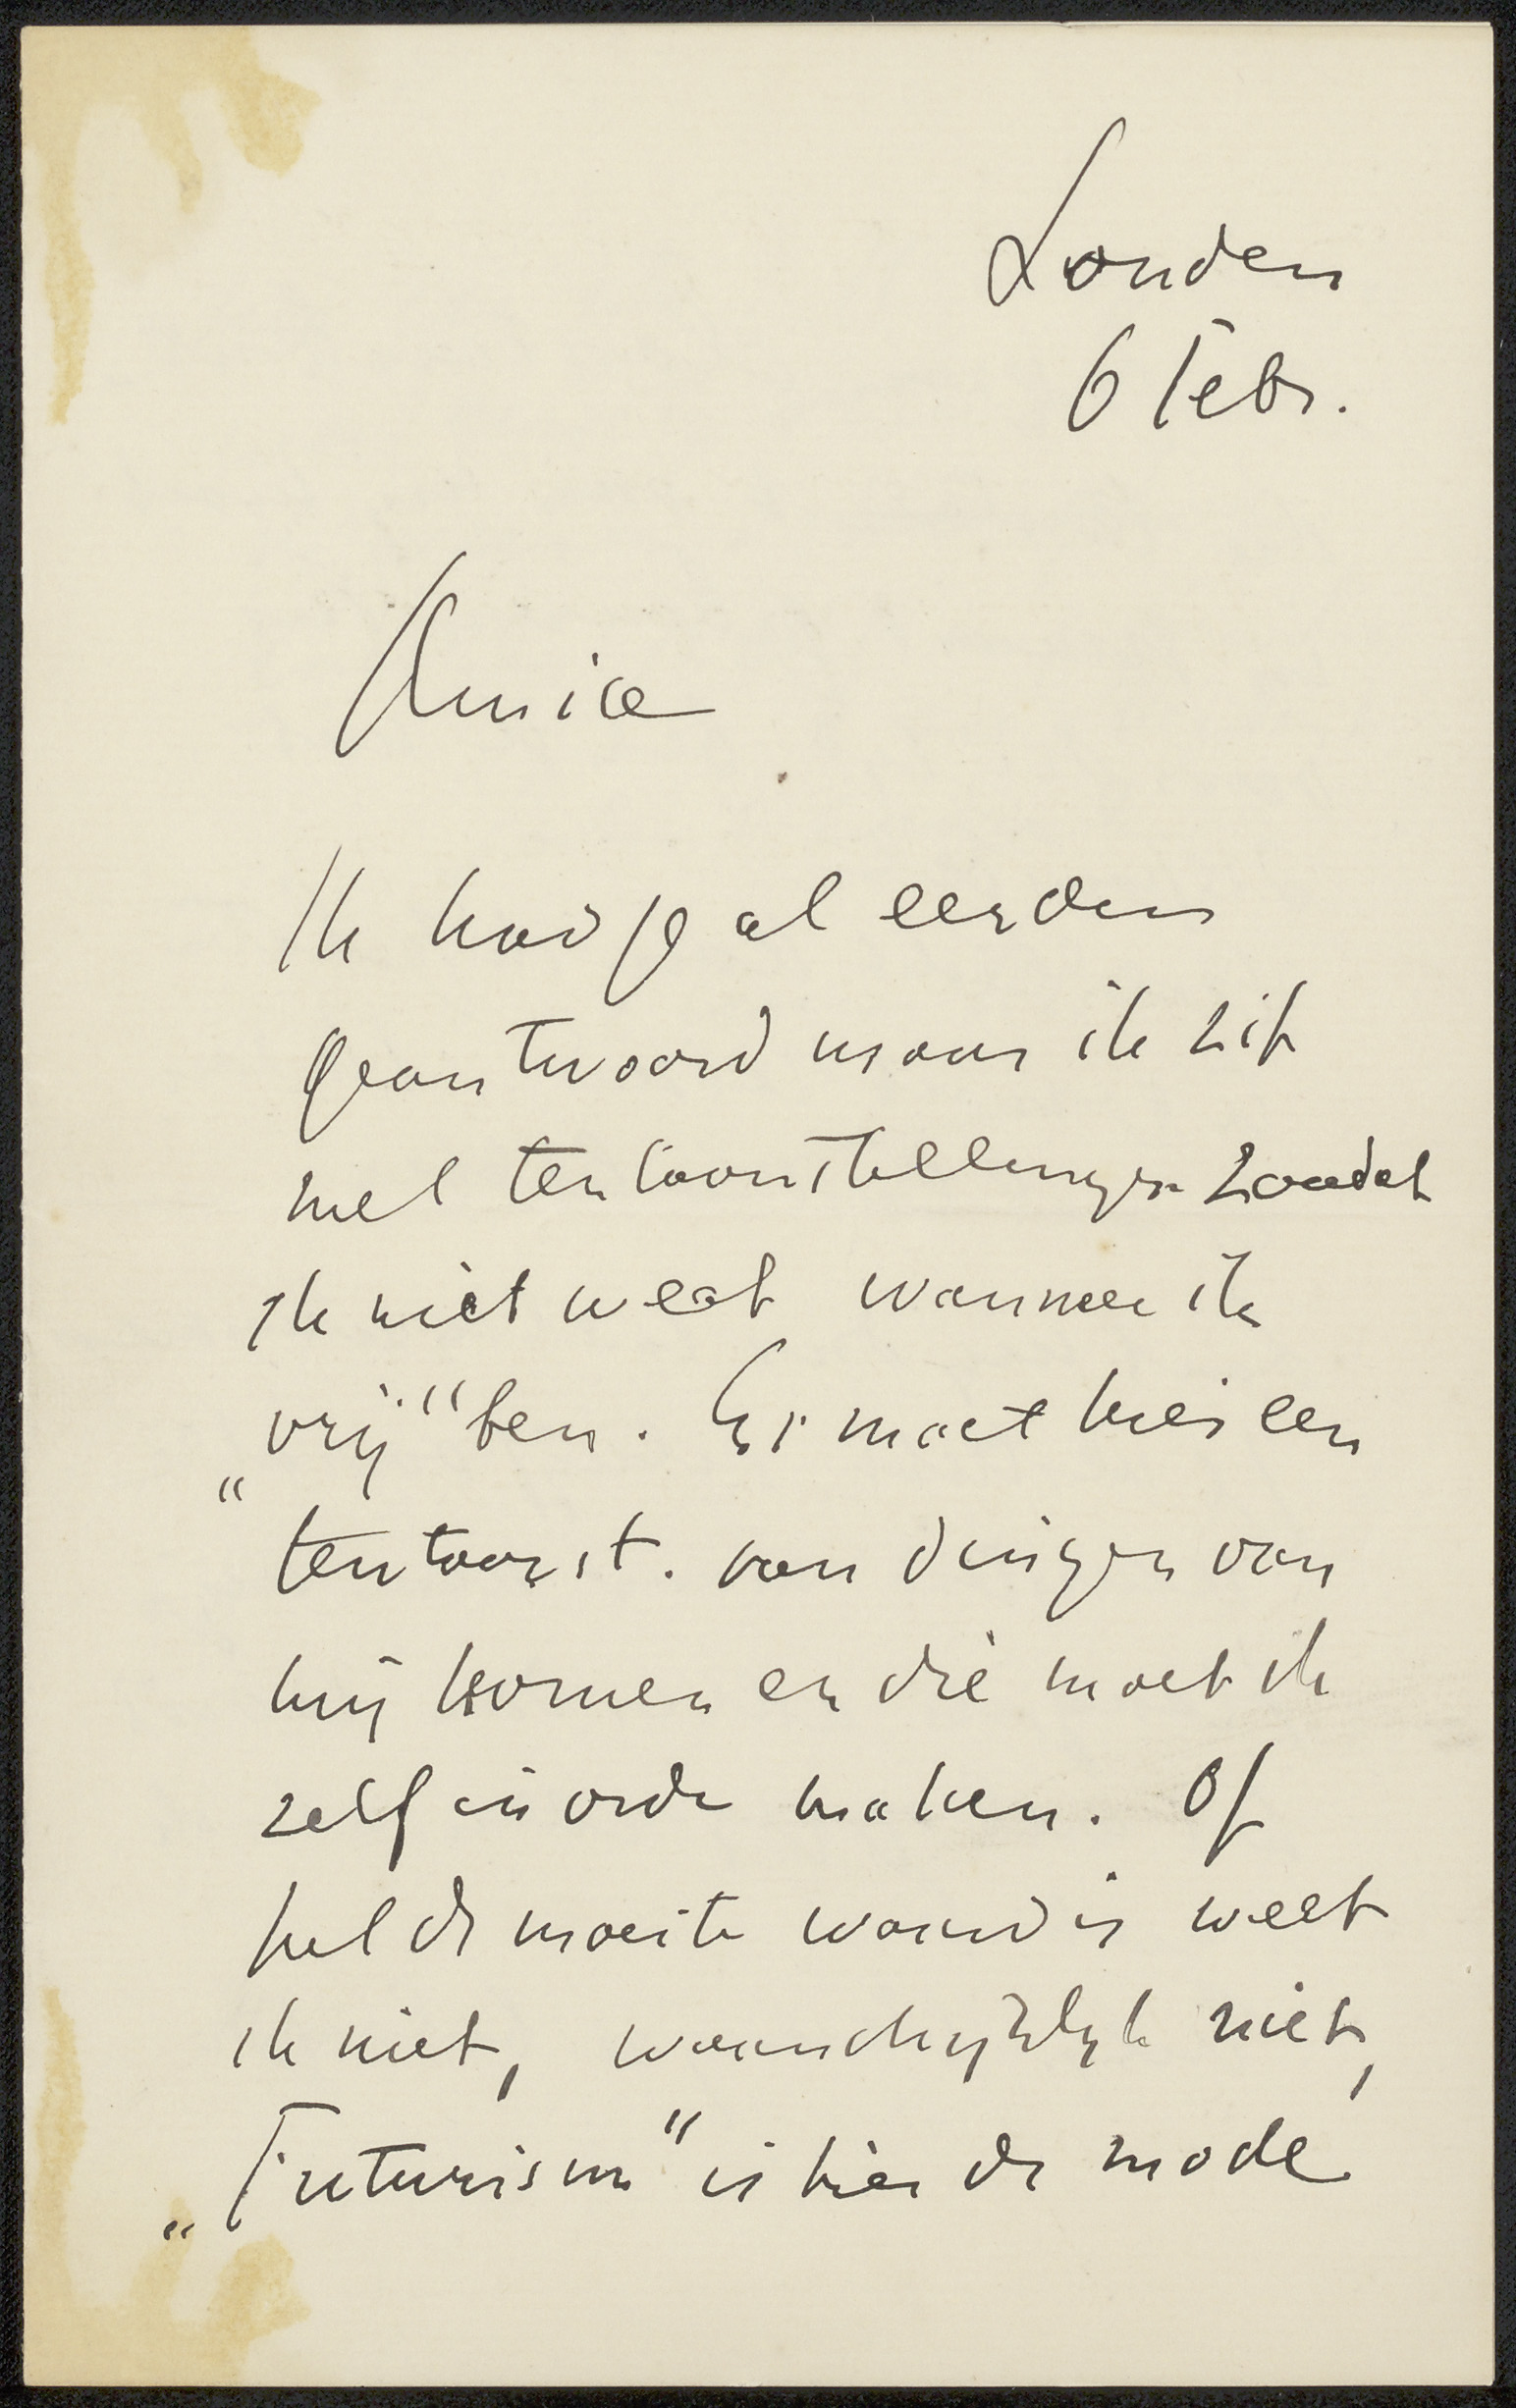 Londen
6 Febr.
Amice
Ik had je al eerder
geantwoord maar ik zit
met tentoonstellingen zoodat
ik niet weet wanneer ik
„vrij" ben. Er moet hier een
tentoonst. van dingen van
mij komen en die moet ik
zelf in orde maken. Of
het de moeite waard is weet
ik niet, waarschijnlijk niet,
„Futurism" is hier de mode